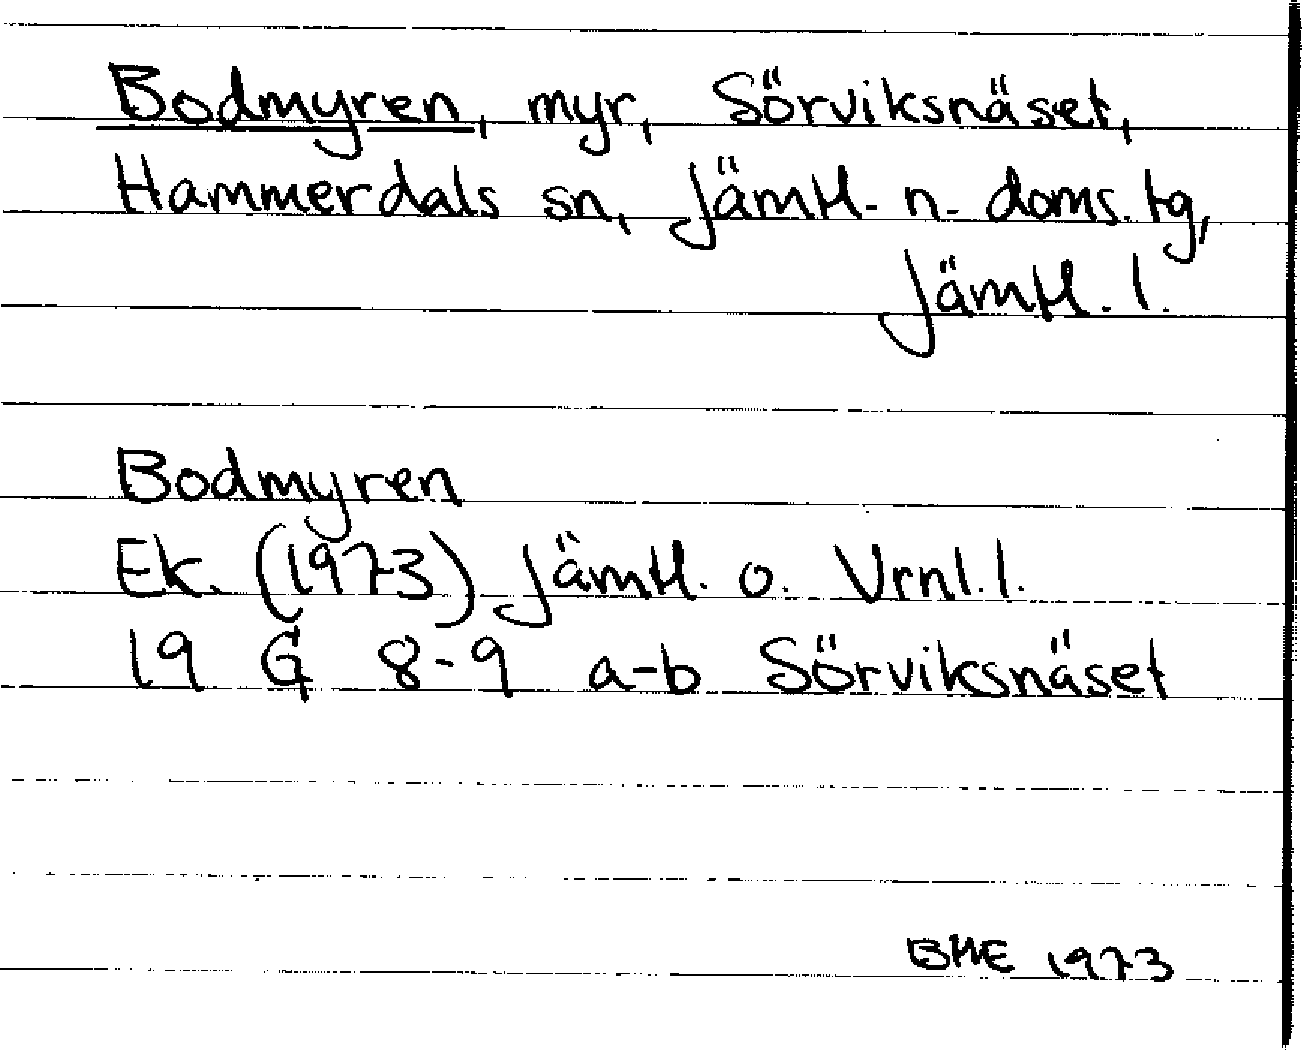 Bodmyren, myr, Sörviksnäset,
Hammerdals sn, Jämtl. n. doms. tg,
Jämtl. l.
Bodmyren
Ek. (1973) Jämtl. o. Vrnl. l.
19 G 8-9 a-b Sörviksnäset
BME 1973